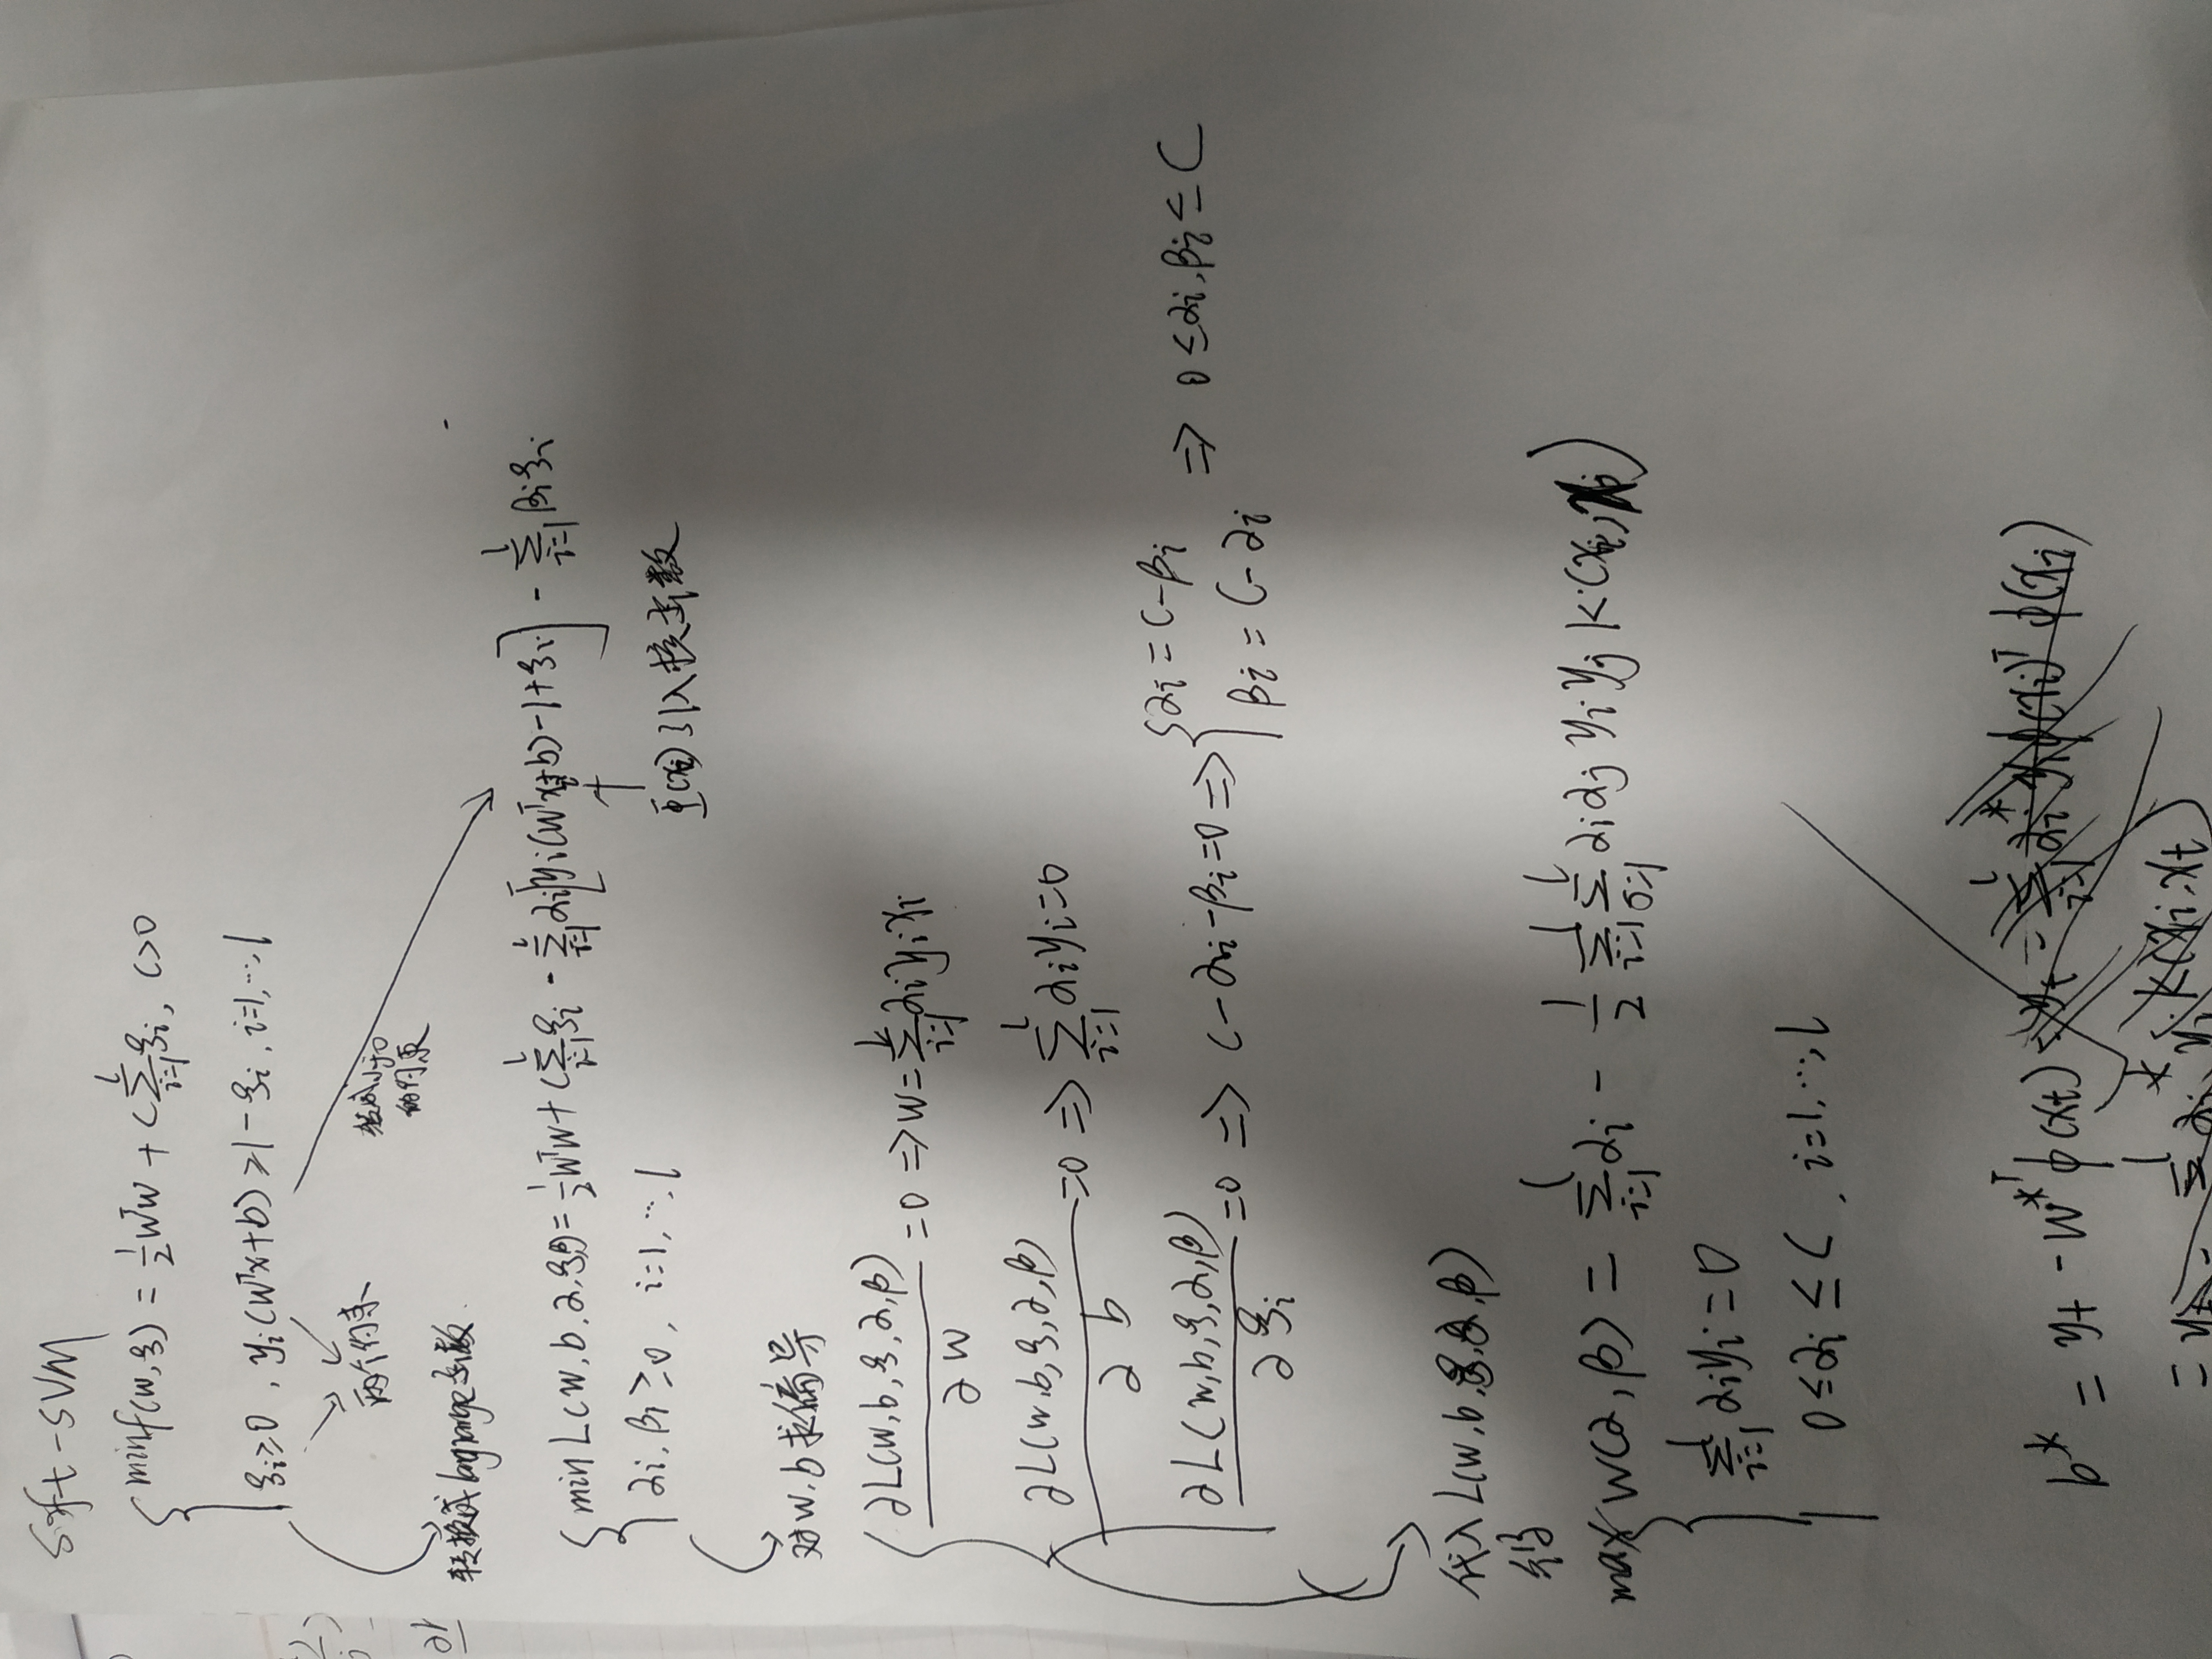 Soft-SVM
min f(w,ξ) = 1/2 wᵀw + C∑_{i=1}^{l} ξi, C>0
ξi≥0, yi(wᵀx+b) ≥1-ξi, i=1,…,l
两个约束
转换成小于0
的约束
转换成lagrange函数
min L(w,b,α,ξ,β) = 1/2 wᵀw + C∑_{i=1}^{l} ξi - ∑_{i=1}^{l} αi[yi(wᵀxi+b)-1+ξi] - ∑_{i=1}^{l} βiξi
αi, βi ≥0, i=1,…,l
Φ(xi)引入核函数
对w,b求偏导
∂L(w,b,ξ,α,β)/∂w =0 ⇒ w=∑_{i=1}^{l} αiyixi
∂L(w,b,ξ,α,β)/∂b =0 ⇒ ∑_{i=1}^{l} αiyi=0
∂L(w,b,ξ,α,β)/∂ξi =0 ⇒ C-αi-βi=0 ⇒ { αi=C-βi
βi=C-αi ⇒ 0≤αi,βi≤C
代入L(w,b,ξ,α,β)
得
max W(α,β) = ∑_{i=1}^{l} αi - 1/2 ∑_{i=1}^{l} ∑_{j=1}^{l} αiαj yiyj K(xi,xj)
∑_{i=1}^{l} αiyi=0
0≤αi≤C, i=1,…,l
b* = yt - w*ᵀϕ(xt) = yt - ∑_{i=1}^{l} αi* yiϕ(xi)ᵀϕ(xi)
= yt - ∑^{l} αi* yi K(xi,xt)